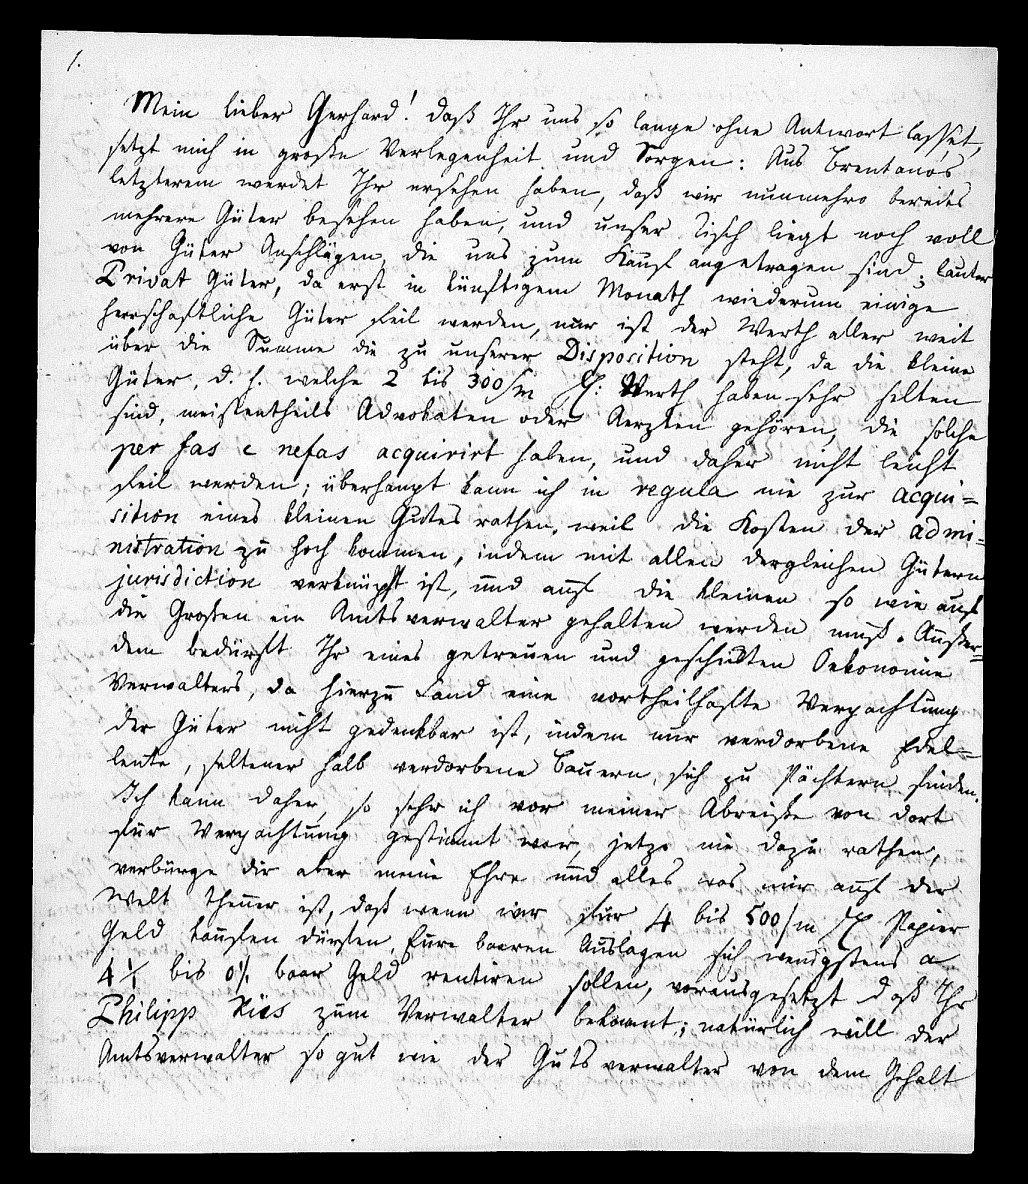 1.
Mein lieber Gerhard! daß Ihr uns so lange ohne Antwort lasset,
setzt mich in große Verlegenheit und Sorgen: Aus Brentano's
letzterem werdet Ihr ersehen haben, daß wir nunmehro bereits
mehrere Güter besehen haben, und unser Tisch liegt noch voll
von Güter Anschlägen die uns zum Kauf angetragen sind; lauter
Privat Güter, da erst in künftigem Monath wiederum einige
herrschaftliche Güter feil werden, nur ist der Werth aller weit
über die Summe die zu unserer Disposition steht, da die kleine
Güter, d. h. welche 2 bis 300/m Werth haben sehr selten
sind, meistentheils Advokaten oder Aerzten gehören, die solche
per fas e nefas acquirirt haben, und daher nicht leicht
feil werden; überhaupt kann ich in regula nie zur acqui=
sition eines kleinen Gutes rathen, weil die Kosten der admi=
nistration zu hoch kommen, indem mit allen dergleichen Gütern
jurisdiction verknüpft ist, und auf die kleinen so wie auf
die Großen ein Amtsverwalter gehalten werden muß. Außer=
dem bedürft Ihr eines getreuen und geschickten Oekonomie
Verwalters, da hierzu Land eine vortheilhafte Verpachtung
der Güter nicht gedenkbar ist, indem nur verdorbene Edel=
leute, seltener halb verdorbene Bauern, sich zu Pächtern finden.
Ich kann daher, so sehr ich vor meiner Abreiße von dort
für Verpachtung gestimmt war, jetzo nie dazu rathen,
verbürge dir aber meine Ehre und alles was mir auf der
Welt theuer ist, daß wenn wir für 4 bis 500/m Papier
Geld kaufen dürften, Eure baaren Auslagen sich wenigstens a
4 bis baar Geld rentiren sollen, vorausgesetzt daß Ihr
Philipp Ries zum Verwalter bekommt; natürlich will der
Amtsverwalter so gut wie der Gutsverwalter von dem Gehalt